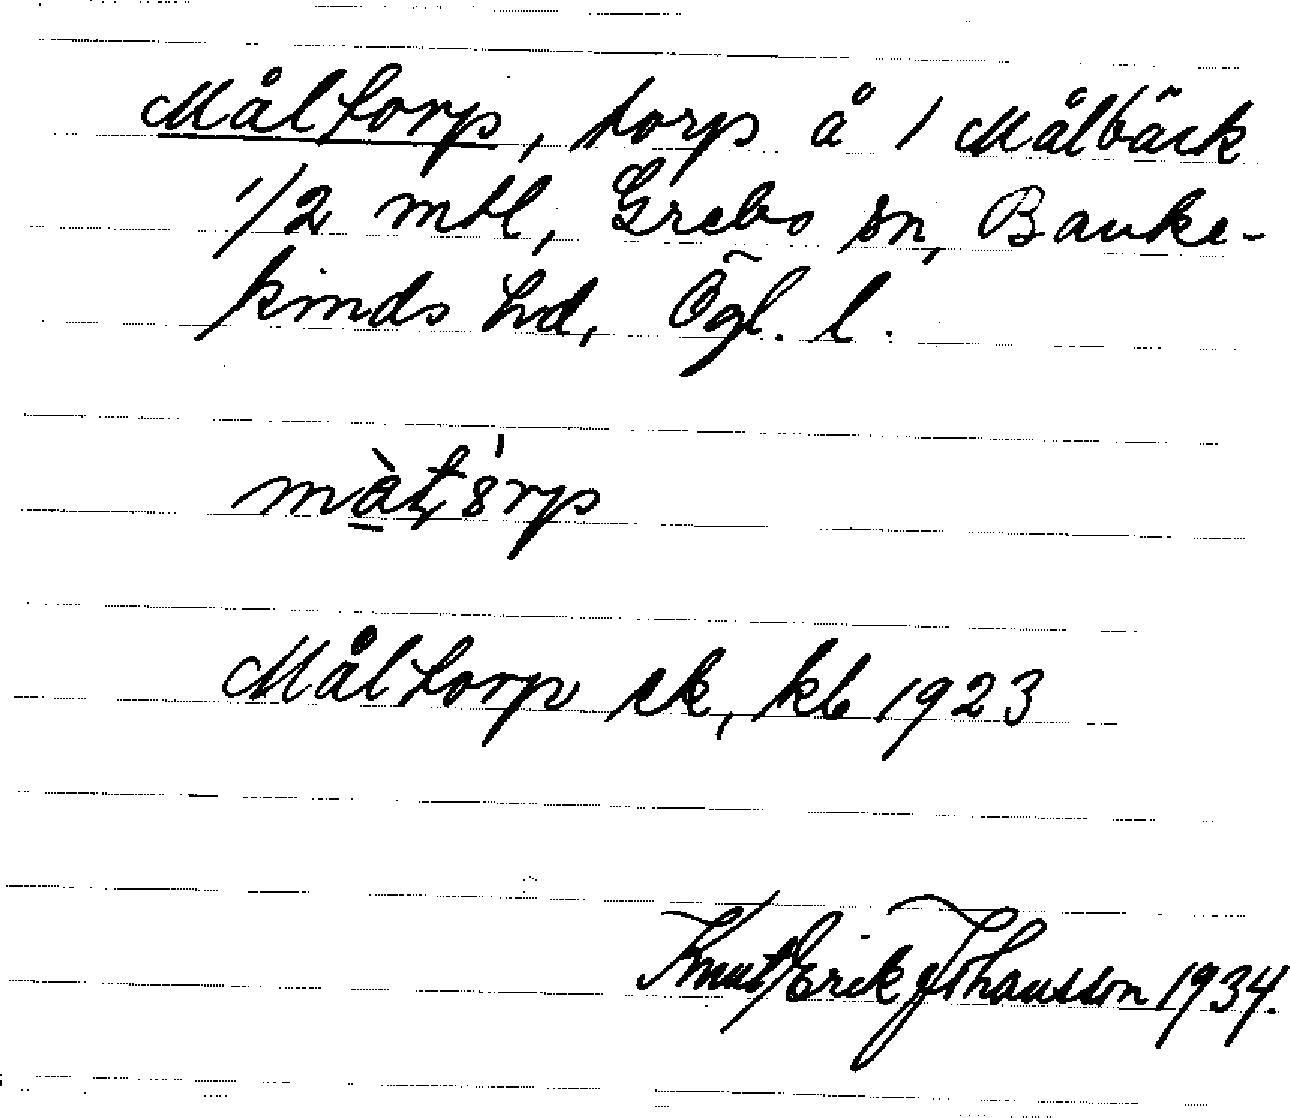 Måltorp, torp å 1 Målbäck
1/2 mtl, Grebo sn, Banke-
kinds hd, Ögl. l.
Måltorp ek, kb 1923
Knut Erik Johansson 1934.